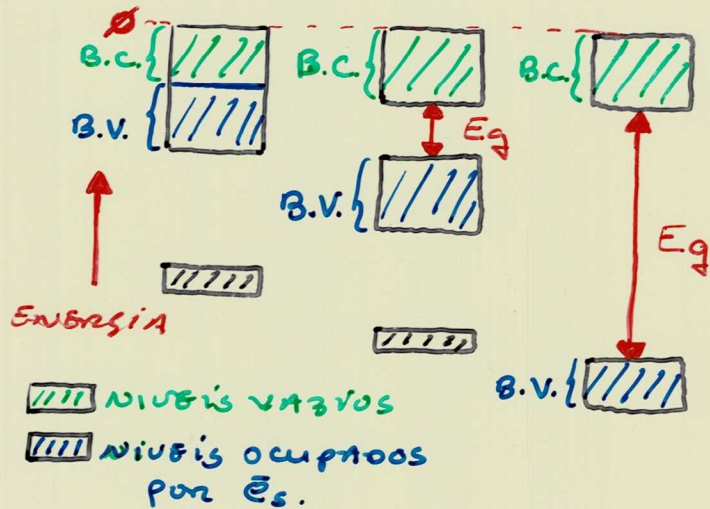 Ø
B.C. B.C. B.C.
B.V. Eg
B.V. Eg
ENERGIA
B.V.
NIVEIS VAZIOS
NIVEIS OCUPADOS
POR ēs.